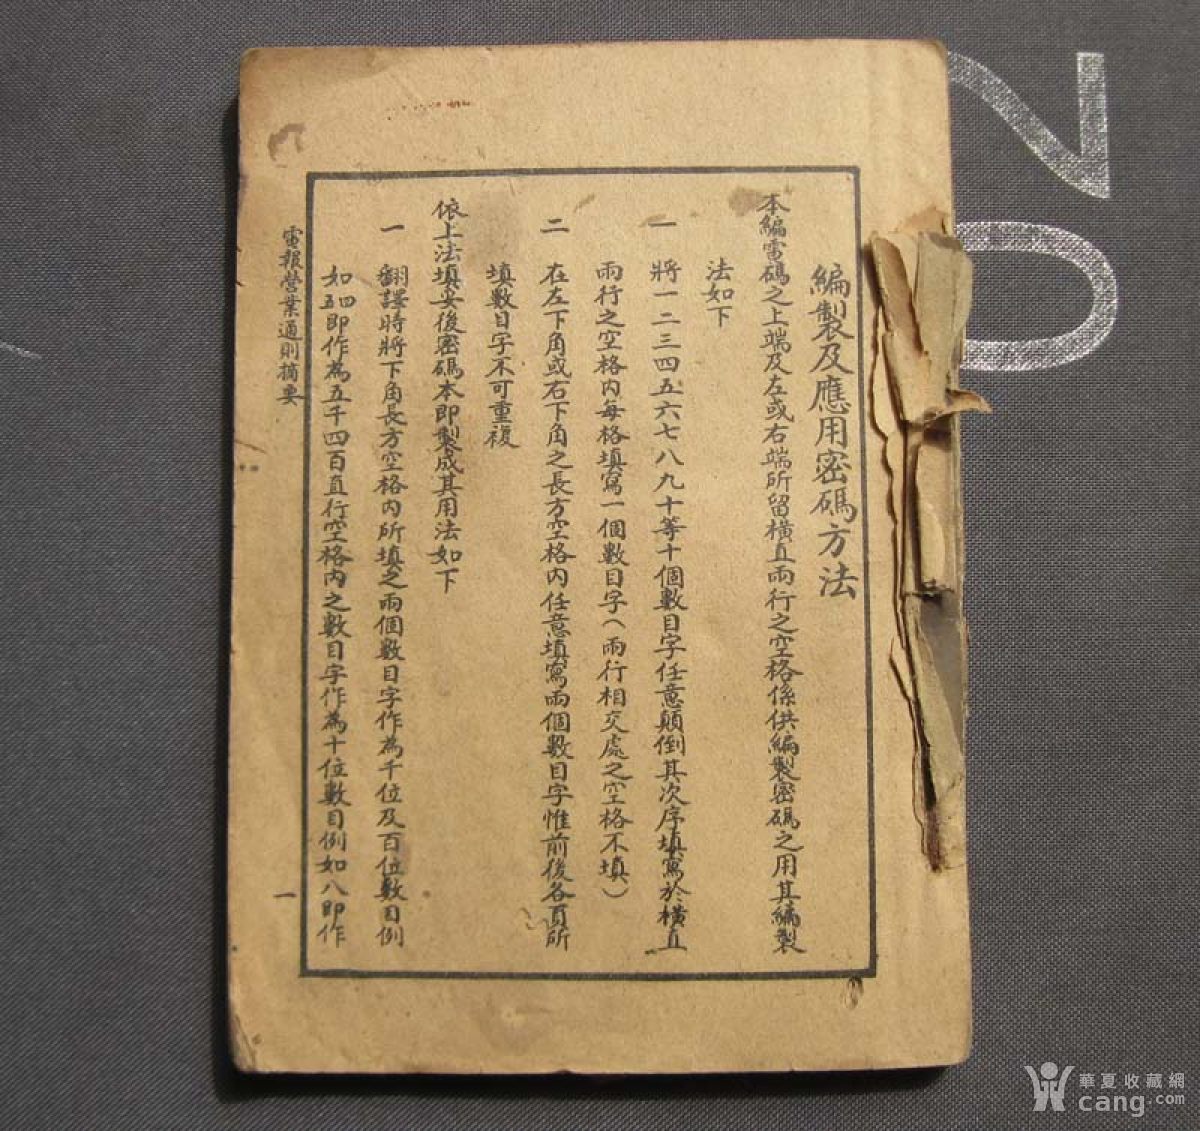 編製及應用密碼方法
本編電碼之上端及左或右端所留橫直兩行之空格係供編製密碼之用其編製
法如下
一 將一二三四五六七八九十等十個數目字任意顛倒其次序填寫於橫直
兩行之空格內每格填寫一個數目字（兩行相交處之空格不填）
二 在左下角或右下角之長方空格內任意填寫兩個數目字惟前後各頁所
填數目字不可重複
依上法填妥後密碼本即製成其用法如下
一 翻譯時將下角長方空格內所填之兩個數目字作為千位及百位數目例
如五四即作為五千四百直行空格內之數目字作為十位數目例如八即作
電報營業通則摘要
一
02
華夏收藏網
cang.com